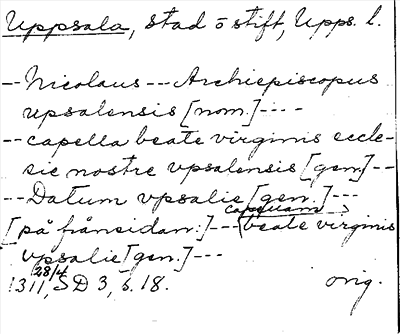 Uppsala, stad o stift, Upps. l.
--Nicolaus---Archiepiscopus
upsalensis [nom.]----
--capella beate virginis eccle-
sie nostre vpsalensis [gen.]--
--Datum vpsalie [gen.]---
[på frånsidan:]---(capellam) beate virginis
vpsalie [gen.]---
1311 28/4, SD 3, s. 18. orig.